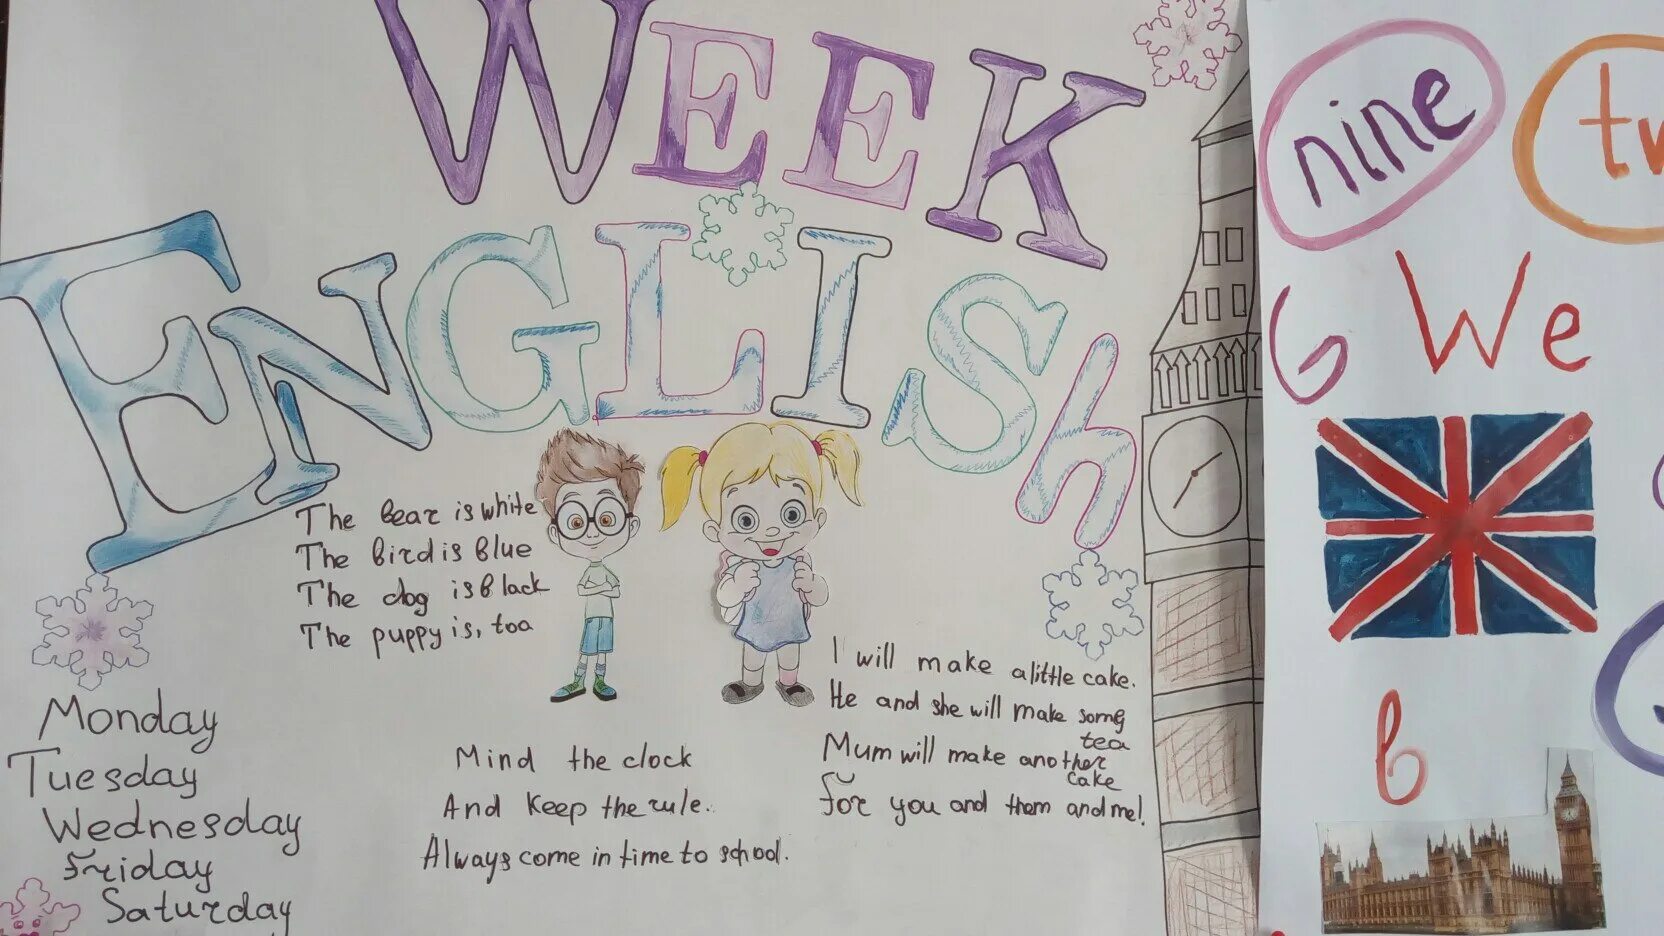 WEEK
ENGLISh
The bear is white
The bird is blue
The dog is black
The puppy is, too
Monday
Tuesday
Wednesday
Friday
Saturday
Mind the clock
And keep the rule.
Always come in time to school.
I will make a little cake.
He and she will make some
tea
Mum will make another
cake
for you and them and me!
nine
tw
G We
b